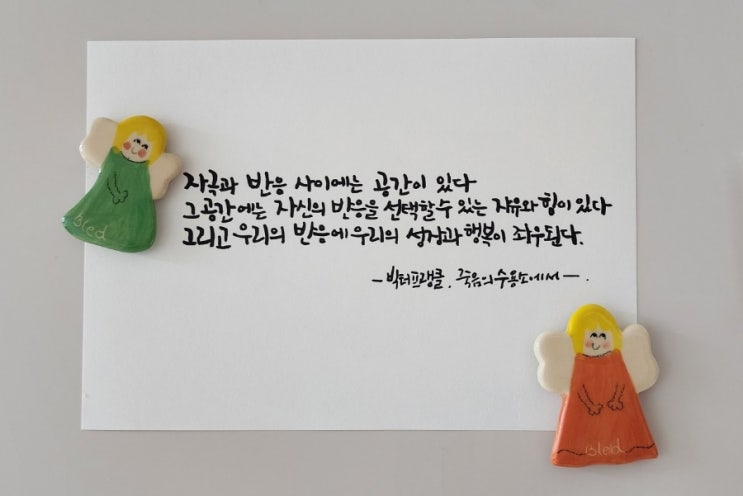 자극과 반응 사이에는 공간이 있다
그 공간에는 자신의 반응을 선택할 수 있는 자유와 힘이 있다
그리고 우리의 반응에 우리의 성장과 행복이 좌우된다.
- 빅터프랭클, 죽음의 수용소에서 -.
Bled
Bled